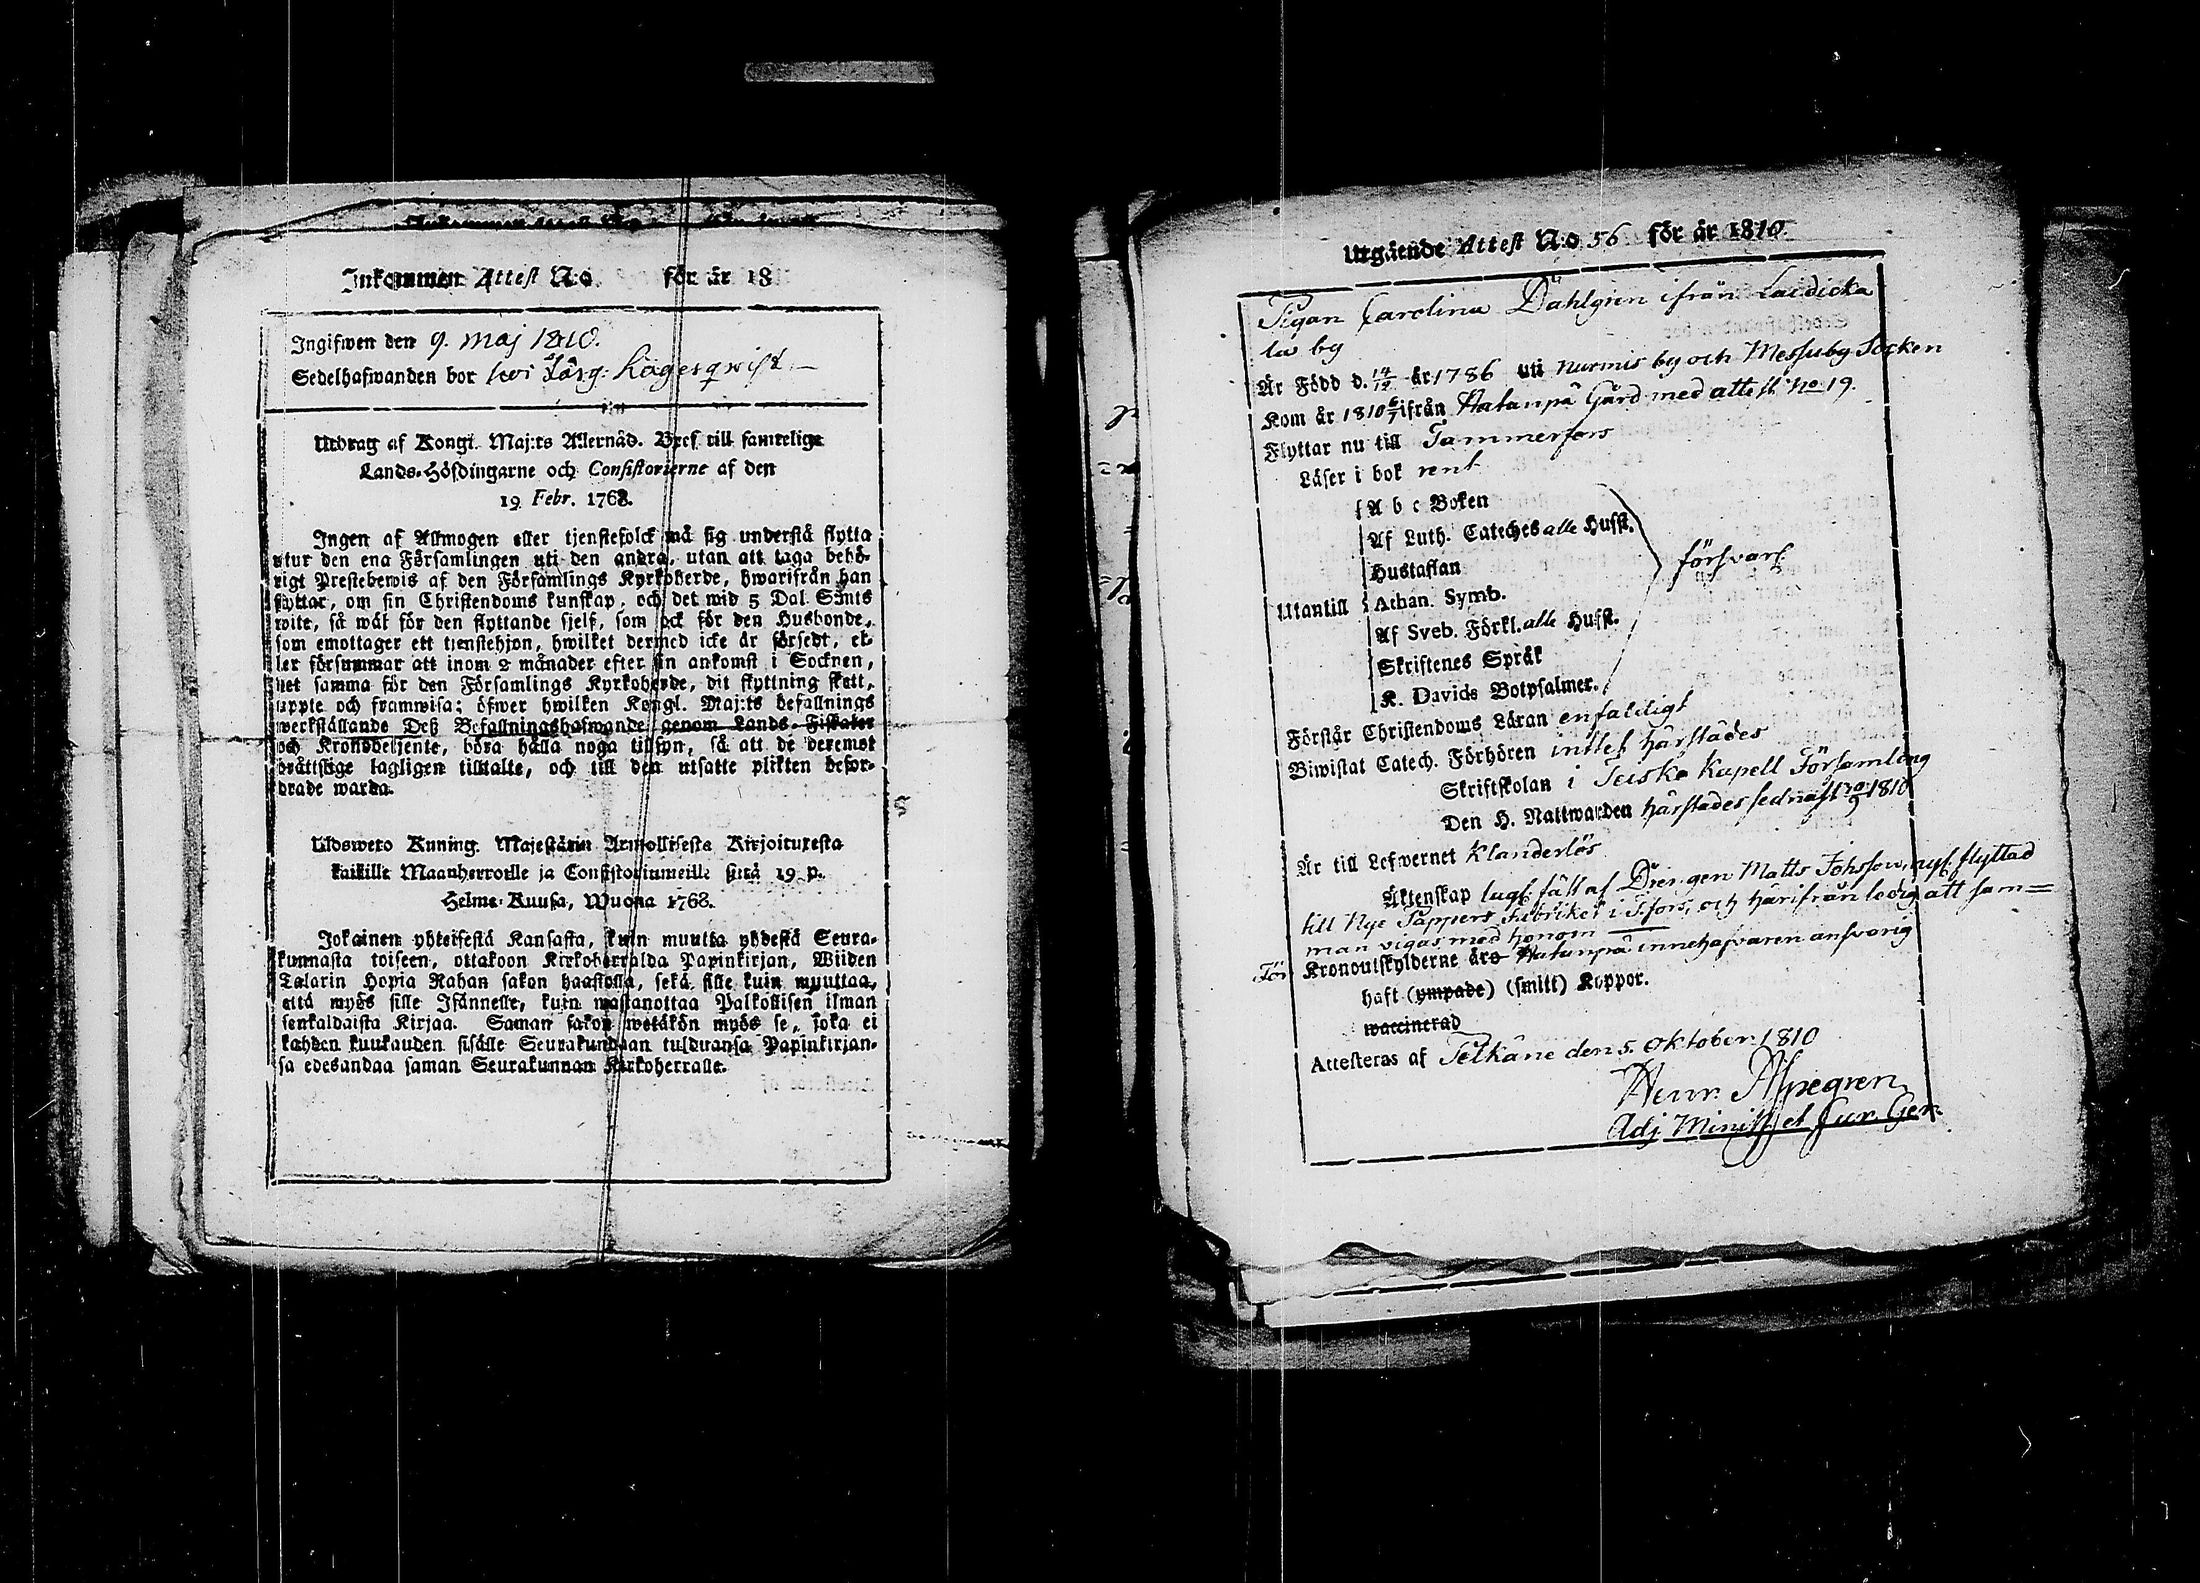 Inkommen Attest N:o för år 18
Ingifwen den 9. maj 1810.
Sedelhafwanden bor hos Lägerqwist
Utdrag af Kongl. Maj:ts Allernåd. Bref till samtelige
Lands-Höfdingarne och Consistorierne af den
19 Febr. 1768.
Ingen af Allmogen eller tjenstefolck må sig understå flytta
utur den ena Församlingen uti den andra, utan att taga behö-
rigt Prestebewis af den Församlings Kyrkoherde, hwarifrån han
flyttar, om sin Christendoms kunskap, och det wid 5 Dal. S:mts
wite, så wäl för den flyttande sjelf, som ock för den Husbonde,
som emottager ett tjenstehjon, hwilket dermed icke är försedt, el-
ler försummar att inom 2 månader efter sin ankomst i Socknen,
det samma för den Församlings Kyrkoherde, dit flyttning skett,
uppte och framwisa; öfwer hwilken Kongl. Maj:ts befallnings
werkställande Deß Befallningshafwande genom Lands-Fiskaler
och Kronobetjente, böra hålla noga tillsyn, så att de deremot
bråttslige lagligen tilltalte, och till den utsatte plikten befor-
drade warda.
Ulosweto Kuning. Majestätin Armollisesta Kirjoituxesta
kaikille Maanherroille ja Consistoriumeille siitä 19 p.
Helme-Kuusa, Wuona 1768.
Jokainen yhteisestä Kansasta, kuin muutta yhdestä Seura-
kunnasta toiseen, ottakoon Kirkoherralda Papinkirjan, Wiiden
Talarin Hopia Rahan sakon haastolla, sekä sille kuin muuttaa,
että myös sille Isännelle, kuin wastanottaa Palkollisen ilman
senkaldaista Kirjaa. Saman sakon wetäkön myös se, joka ei
kahden kuukauden sisälle Seurakundaan tulduansa Papinkirjan-
sa edesandaa saman Seurakunnan Kirkoherralle.
Utgående Attest N:o 56 för år 1810.
Pigan Carolina Dahlgren ifrån Laidicka
la by
Är Född d. 14/12 år 1786 uti Nurmis by och Messuby Socken
Kom år 1810 ifrån Hatanpä Gård med attest No 19.
Flyttar nu till Tammerfors
Läser i bok rent
A b c Boken
Af Luth. Cateches alle Hufst.
Hustaflan
Utantill Athan. Symb. försvarl.
Af Sveb. Förkl. alle Hufst.
Skriftenes Språk
K. Davids Botpsalmer.
Förstår Christendoms Läran enfaldigt
Biwistat Catech. Förhören intet härstädes
Skriftskolan i Teisko Kapell Församling
Den H. Nattwarden härstädes sednast 1810
Är till Lefwernet Klanderlös
Äktenskap lagl. fäst af Drengen Matts Johsson, nyl. flyttad
till Nye Pappers Fabriket i T.fors, och härifrån ledig att sam=
man vigas med honom
För Kronoutskylderne äro Hatanpä innehafvaren ansvarig
haft (ympade) (smitt) Koppor.
waccinerad
Attesteras af Pelkäne den 5. Oktober 1810
Henr. Alpegren
Adj. Minist. et Cur. Ger.